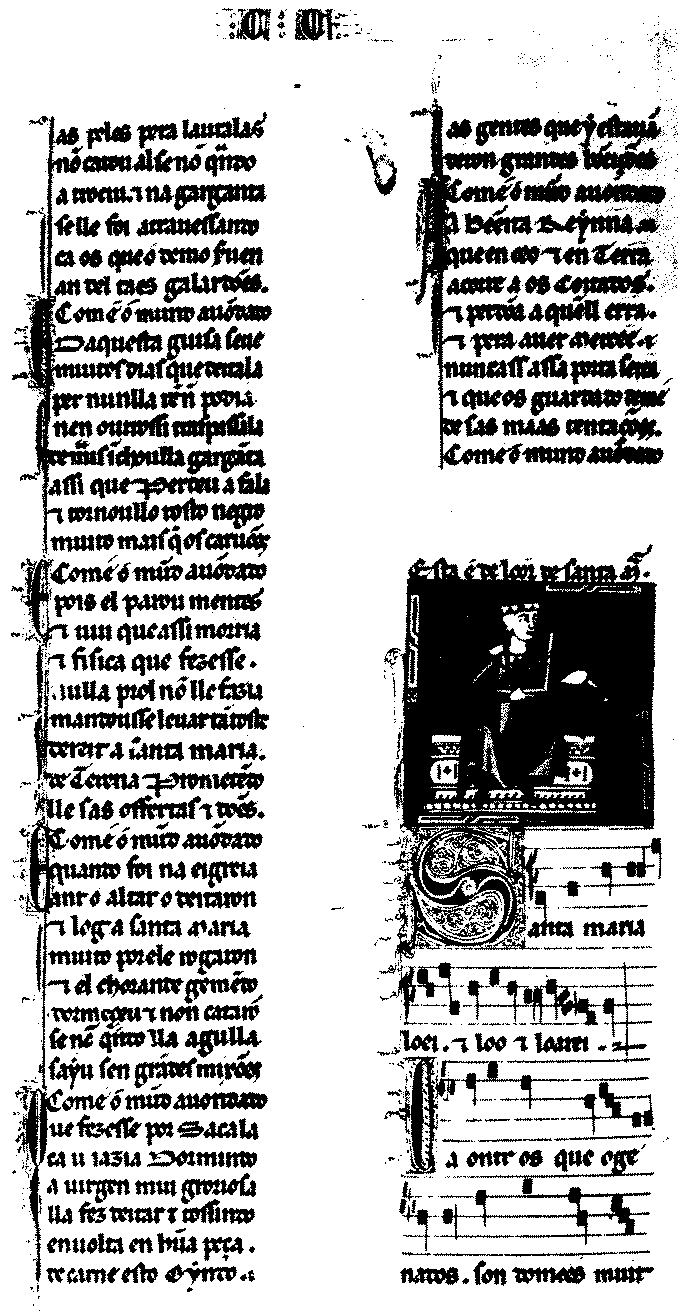 C C
as peles pera lauralas
nõ catou al se nõ qñdo
a meteu ⁊ na garganta
se lle foi atrauessando
ca os que o demo seruen
an del taes galardões.
Come o muito auõdado
Daquesta guisa seue
muitos dias que deitala
per nenlla ren podia
nen outrossi traspassala
demais ichoulla gargãta
assi que Perdeu a fala
⁊ tornoulle o rosto negro
muito mais q̇ os caruões
Come o muito auõdado
pois el parou mentes
⁊ uiu que assi morria
⁊ fisica que fezesse.
nulla prol nõ lle fazia
mandousse leuar tãtoste
dereit a santa maria.
de Terena Prometẽdo
lle sas offertas ⁊ dões.
Come o muito auõdado
quando foi na eigreia
ant o altar o deitaron
⁊ log a santa maria
muito por ele rogaron
⁊ el chorando gemẽdo
dormeceu ⁊ non cataron
se nẽ qñdo lla agulla
sayu sen grãdes mixões
Come o muito auondado
ue fezesse por Sacala
ca u iazia Dormindo
a uirgen mui groriosa
lla fez deitar tossindo
enuolta en hũa peça.
de carne esto Oyndo.
as gentes que y estauã
deron grandes bẽeyções
Come o muito auondado
A bẽeita Reynna
que en ceo ⁊ en Terra
acorr a os Coitados.
⁊ perdõa a quell erra.
⁊ pera auer Merçee.
nuncass assa porta serra
⁊ que os guarda do demo
⁊ de sas maas tentações.
Come o muito auondado
Esta é de loor de santa mª.
Santa maria
loei. ⁊ loo ⁊ loarei.
Ca ontr os que oge
nados. son domees muit